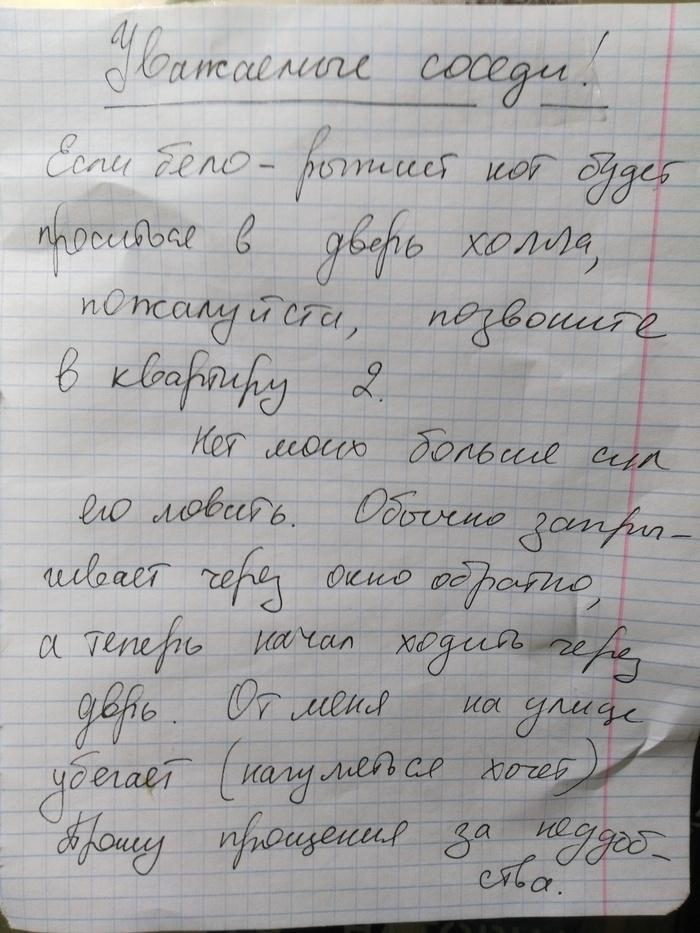 Уважаемые соседи!
Если бело-рыжий кот будет
проситься в дверь холла,
пожалуйста, позвоните
в квартиру 2.
Нет моих больше сил
его ловить. Обычно запры-
гивает через окно обратно,
а теперь начал ходить через
дврь. От меня на улице
убегает (нагуляться хочет)
Прошу прощения за неудоб-
ства.